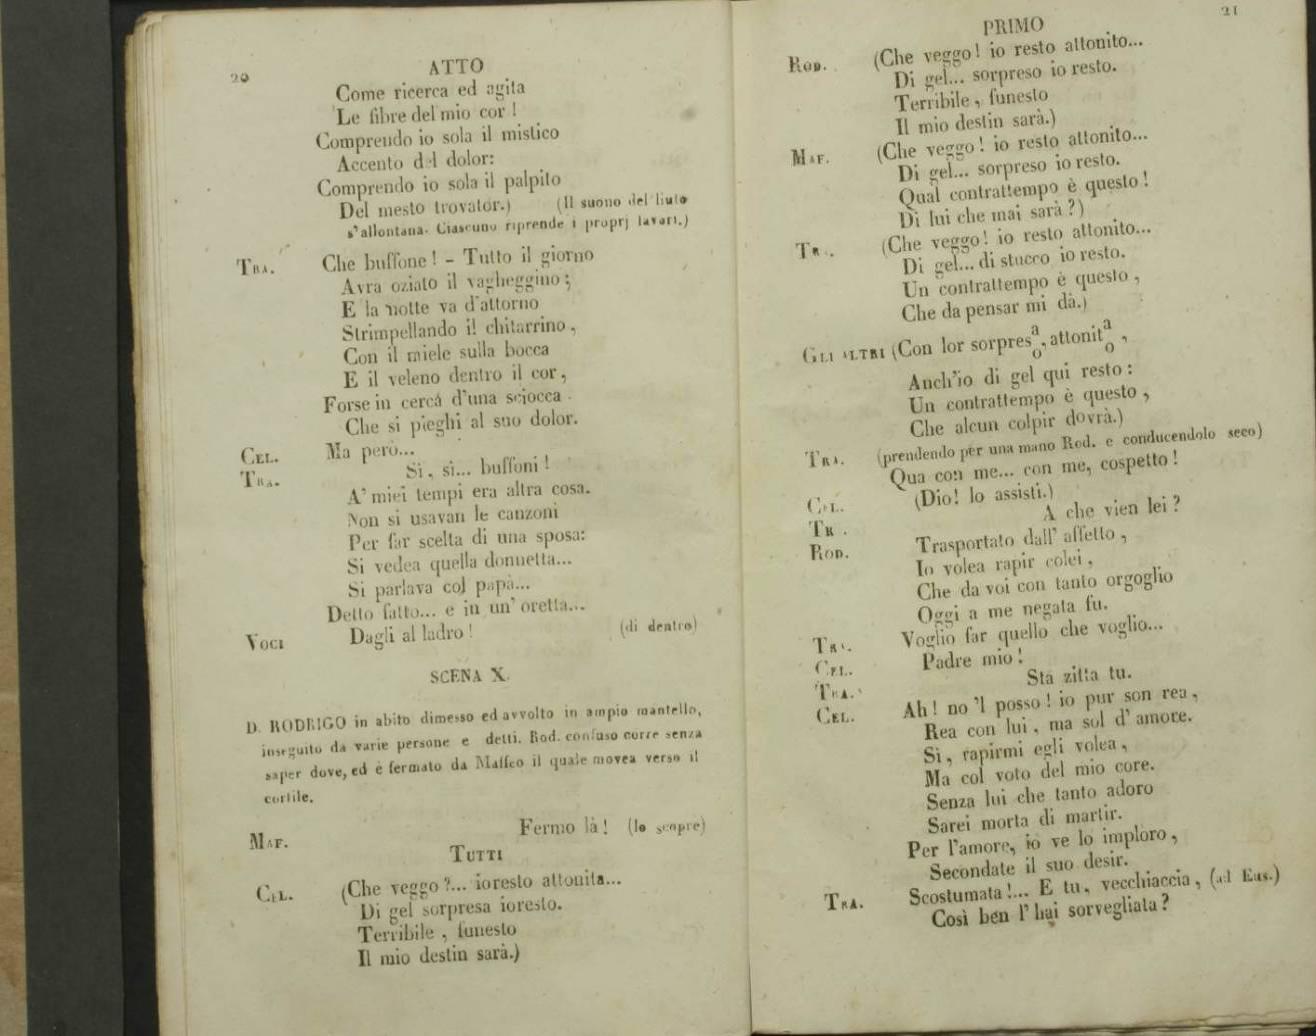 20
ATTO
Come ricerca ed agita
Le fibre del mio cor!
Comprendo io sola il mistico
Accento del dolor:
Comprendo io sola il palpito
Del mesto trovator.) (Il suono del liuto
s'allontana. Ciascuno riprende i proprj lavori.)
TRA. Che buffone! – Tutto il giorno
Avrà oziato il vagheggino;
E la notte va d'attorno
Strimpellando il chitarrino,
Con il miele sulla bocca
E il veleno dentro il cor,
Forse in cerca d'una sciocca
Che si pieghi al suo dolor.
CEL. Ma però...
TRA. Si, si... buffoni!
A' miei tempi era altra cosa.
Non si usavan le canzoni
Per far scelta di una sposa:
Si vedea quella donnetta...
Si parlava col papà...
Detto fatto... e in un' oretta...
VOCI Dagli al ladro! (di dentro)
SCENA X.
D. RODRIGO in abito dimesso ed avvolto in ampio mantello,
inseguito da varie persone e detti. Rod. confuso corre senza
saper dove, ed è fermato da Maffeo il quale movea verso il
cortile.
MAF. Fermo là! (lo scopre)
TUTTI
CEL. (Che veggo?... io resto attonita...
Di gel sorpresa io resto.
Terribile, funesto
Il mio destin sarà.)
PRIMO
21
ROD. (Che veggo! io resto attonito...
Di gel... sorpreso io resto.
Terribile, funesto
Il mio destin sarà.)
MAF. (Che veggo! io resto attonito...
Di gel... sorpreso io resto.
Qual contrattempo è questo!
Di lui che mai sarà?)
TRA. (Che veggo! io resto attonito...
Di gel... di stucco io resto.
Un contrattempo è questo,
Che da pensar mi dà.)
GLI ALTRI (Con lor sorpresa/o, attonita/o,
Anch'io di gel qui resto:
Un contrattempo è questo,
Che alcun colpir dovrà.)
TRA. (prendendo per una mano Rod. e conducendolo seco)
Qua con me... con me, cospetto!
CEL. (Dio! lo assisti.)
TRA. A che vien lei?
ROD. Trasportato dall' affetto,
Io volea rapir colei,
Che da voi con tanto orgoglio
Oggi a me negata fu.
TRA. Voglio far quello che voglio...
CEL. Padre mio!
TRA. Sta zitta tu.
CEL. Ah! no 'l posso! io pur son rea,
Rea con lui, ma sol d' amore.
Sì, rapirmi egli volea,
Ma col voto del mio core.
Senza lui che tanto adoro
Sarei morta di martir.
Per l'amore, io ve lo imploro,
Secondate il suo desir.
TRA. Scostumata!... E tu, vecchiaccia, (ad Eus.)
Così ben l' hai sorvegliata?